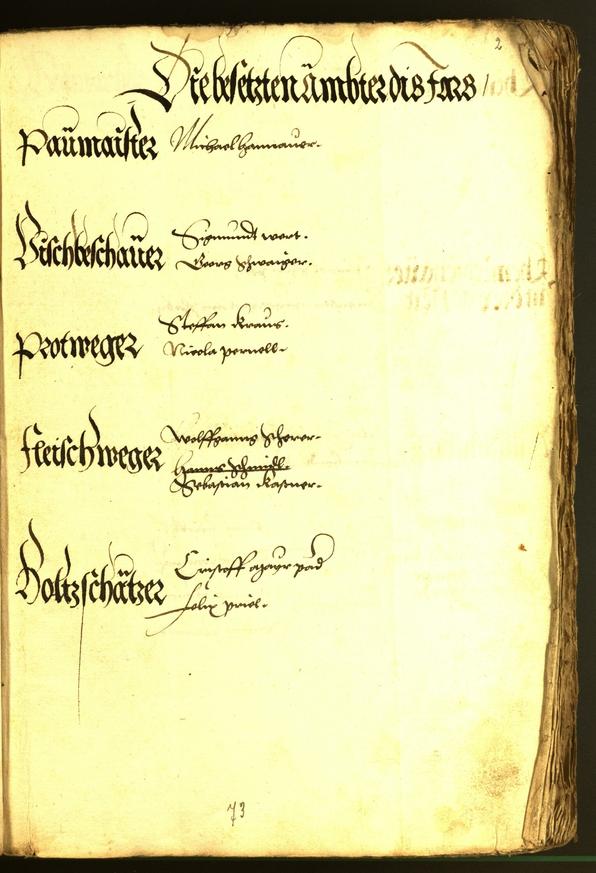 2
Die besetzten ämbter dis Jars
Paumaister Michael hannauer.
Vischbeschauer Sigmundt wert.
Georg Schwaiger.
Protweger Steffan Kraus.
Nicola pernell.
Fleischweger Wolffganng Scherer.
hanns Schmidl.
Sebastian Kastner.
Holtzschätzer Cristoff mayr pad
Felix priel.
73